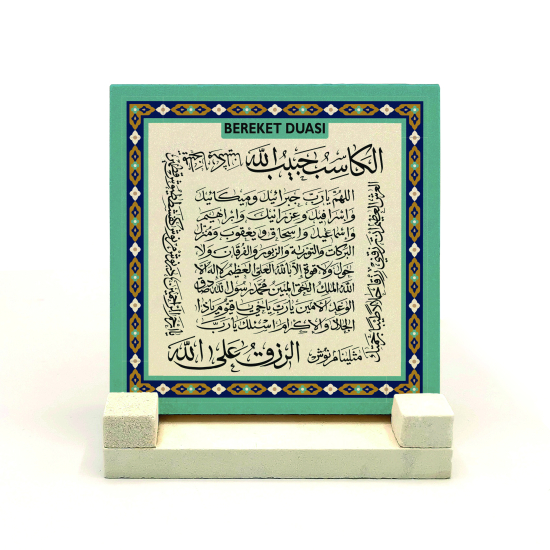 BEREKET DUASI
الكاسب حبيب الله
اللهم يارب جبرائيل وميكائيل
واسرافيل وعزرائيل وابراهيم
واسماعيل واسحاق ويعقوب ومنزل
البركات والتورية والزبور والفرقان ولا
حول ولا قوة الا بالله العلى العظيم لا اله الا
الله الملك الحق المبين محمد رسول الله صادق
الوعد الامين يارب يارب ياحي ياقيوم ياذا
الجلال والاكرام اسئلك يارب
العرش العظيم ان ترزقنى رزقا حلالا طيبا برحمتك
الرزق على الله